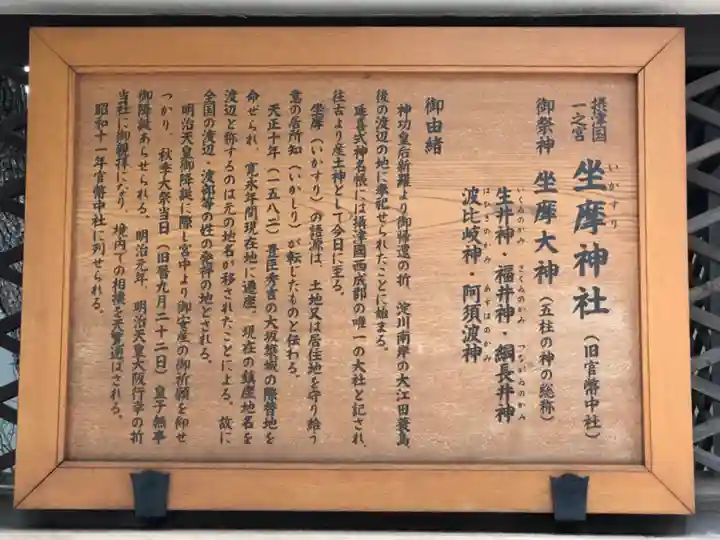 摂津国
一之宮
坐摩神社（旧官幣中社）
いかすり
御祭神 坐摩大神（五柱の神の総称）
生井神・福井神・綱長井神
いくゐのかみ さくゐのかみ つながゐのかみ
波比岐神・阿須波神
はひきのかみ あすはのかみ
御由緒
神功皇后新羅より御帰還の折、淀川南岸の大江田蓑島、
後の渡辺の地に奉祀せられたことに始まる。
延喜式神名帳には摂津國西成郡の唯一の大社と記され、
往古より産土神として今日に至る。
坐摩（いかすり）の語源は、土地又は居住地を守り給う
意の居所知（いかしり）が転じたものと伝わる。
天正十年（一五八二）豊臣秀吉の大坂築城の際替地を
命せられ、寛永年間現在地に遷座。現在の鎮座地名を
渡辺と称するのは元の地名が移されたことによる。故に
全国の渡辺・渡部等の姓の発祥の地とされる。
明治天皇御降誕に際し宮中より御安産の御祈願を仰せ
つかり、秋季大祭当日（旧暦九月二十二日）皇子無事
御降誕あらせられる。明治元年、明治天皇大阪行幸の折
当社に御親拝になり、境内での相撲を天覧遊ばされる。
昭和十一年官幣中社に列せられる。